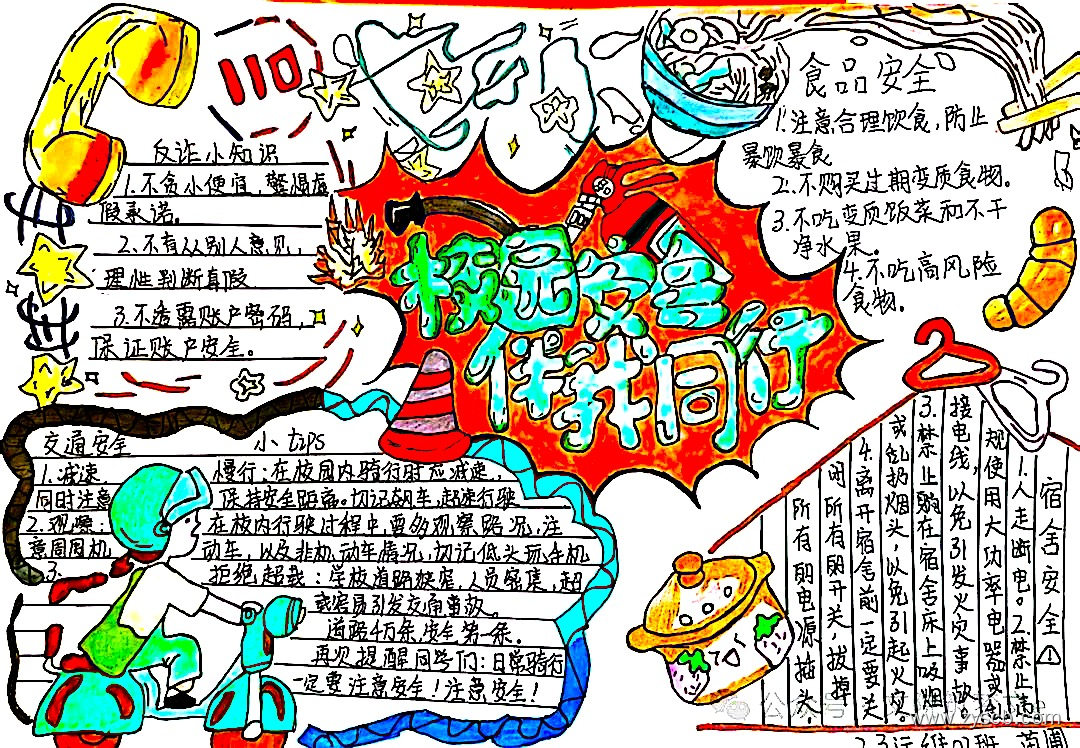 110
反诈小知识
1.不贪小便宜,警惕虚
假承诺。
2.不盲从别人意见,
理性判断真假
3.不透露账户密码,
保证账户安全。
校园安全
伴我同行
食品安全
1.注意合理饮食,防止
暴饮暴食
2.不购买过期变质食物。
3.不吃变质饭菜和不干
净水果。
4.不吃高风险
食物。
交通安全 小tips
1.减速 慢行:在校园内骑行时应减速,
同时注意 保持安全距离。切记飙车,超速行驶
2.观察: 在校内行驶过程中,要多观察路况,注
意周围机 动车,以及非机动车情况,切记低头玩手机
3. 拒绝超载:学校道路狭窄,人员密集,超
载容易引发交通事故。
道路千万条,安全第一条。
再次提醒同学们:日常骑行
一定要注意安全!注意安全!
宿舍安全
1.人走断电。2.禁止违
规使用大功率电器或乱
接电线,以免引发火灾事故。
3.禁止躺在宿舍床上吸烟
或乱扔烟头,以免引起火灾。
4.离开宿舍前一定要关
闭所有的开关,拔掉
所有的电源插头。
公众号